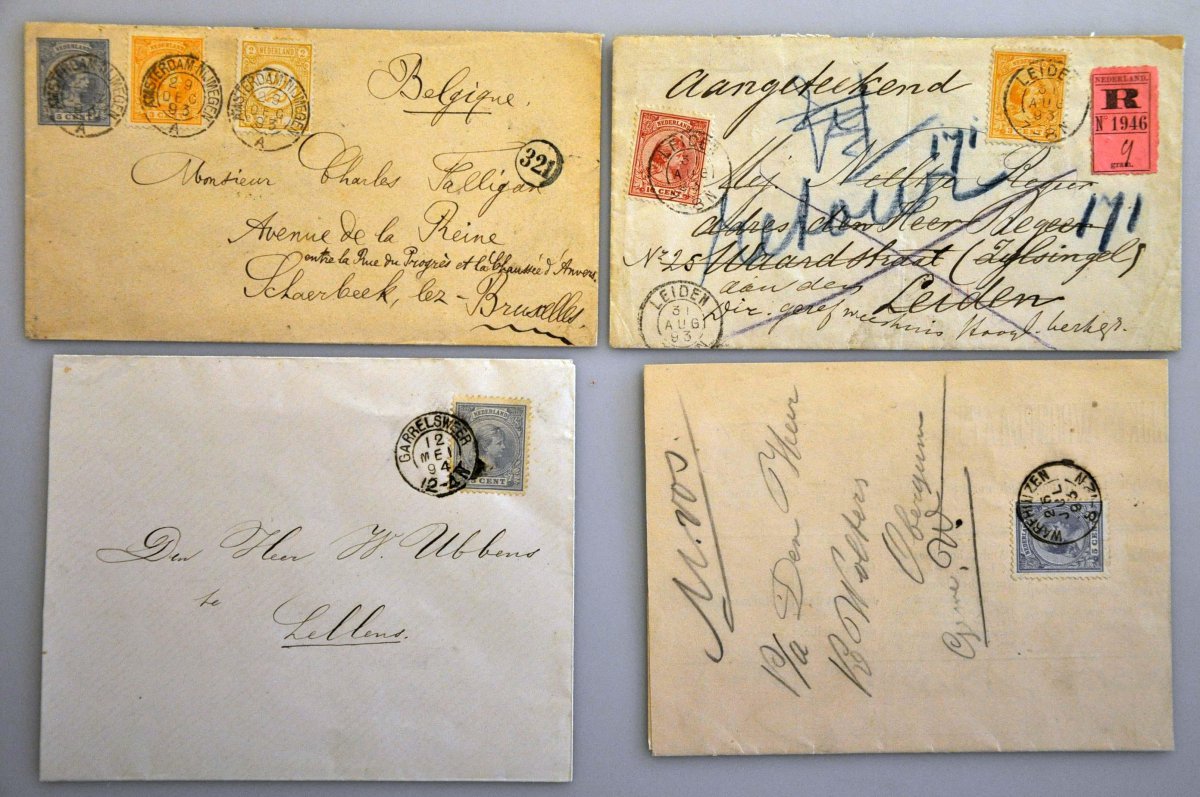 AMSTERDAM-NIJMEGEN
A
5 CENT
AMSTERDAM-NIJMEGEN
29
DEC
93
A
CENT
2 NEDERLAND 2
AMSTERDAM-NIJMEGEN
A
Belgique.
321
Monsieur Charles
Avenue de la Reine
entre la Rue du Progrès et la Chaussée d'Anvers
Schaerbeek, lez-Bruxelles.
Aangeteekend
NEDERLAND
LEIDEN
31
10 CENT
LEIDEN
31
AUG
93
CENT
NEDERLAND.
R
No 1946
9
gram.
171
Retour
Mej.
adres den Heer
171
No 25 Waardstraat (Zylsingel)
aan den
Leiden
LEIDEN
31
AUG
93
Dir.
NEDERLAND
GARRELSWEER
12
MEI
94
12-4N
5 CENT
Den Heer W. Ubbens
te
Lellens.
P/a Den Heer
Wolters
Obergum
WARFHUIZEN
26
JUL
93
NEDERLAND
5 CENT